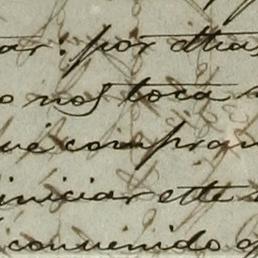 ar: por dha
o nos toca
ue compran
iniciar este
convenido q